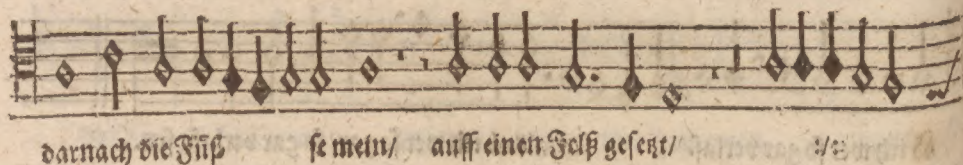 darnach die Füß se mein/ auff einen Felß gesetzt/ :/: